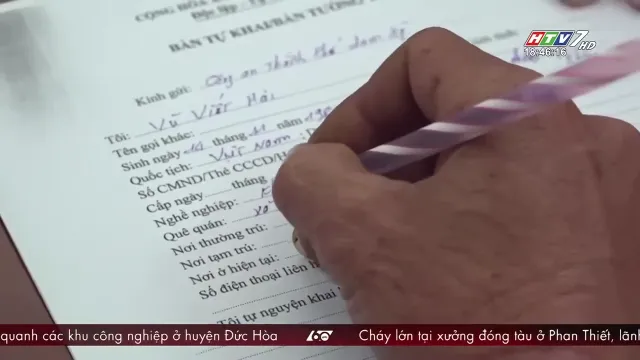 CỘNG HÒA
Độc lập - Tự
BẢN TỰ KHAI/BẢN TƯỜNG
HTV7 HD
18:46:16
Kính gửi: Công an Thành Phố
Tôi: Vũ Viết Hải
Tên gọi khác:
Sinh ngày 14 tháng 11 năm 196
Quốc tịch: Việt Nam
Số CMND/Thẻ CCCD/H
Cấp ngày tháng
Nghề nghiệp:
Quê quán:
Nơi thường trú:
Nơi tạm trú:
Nơi ở hiện tại:
Số điện thoại liên h
Tôi tự nguyện khai
quanh các khu công nghiệp ở huyện Đức Hòa
Cháy lớn tại xưởng đóng tàu ở Phan Thiết, lãn